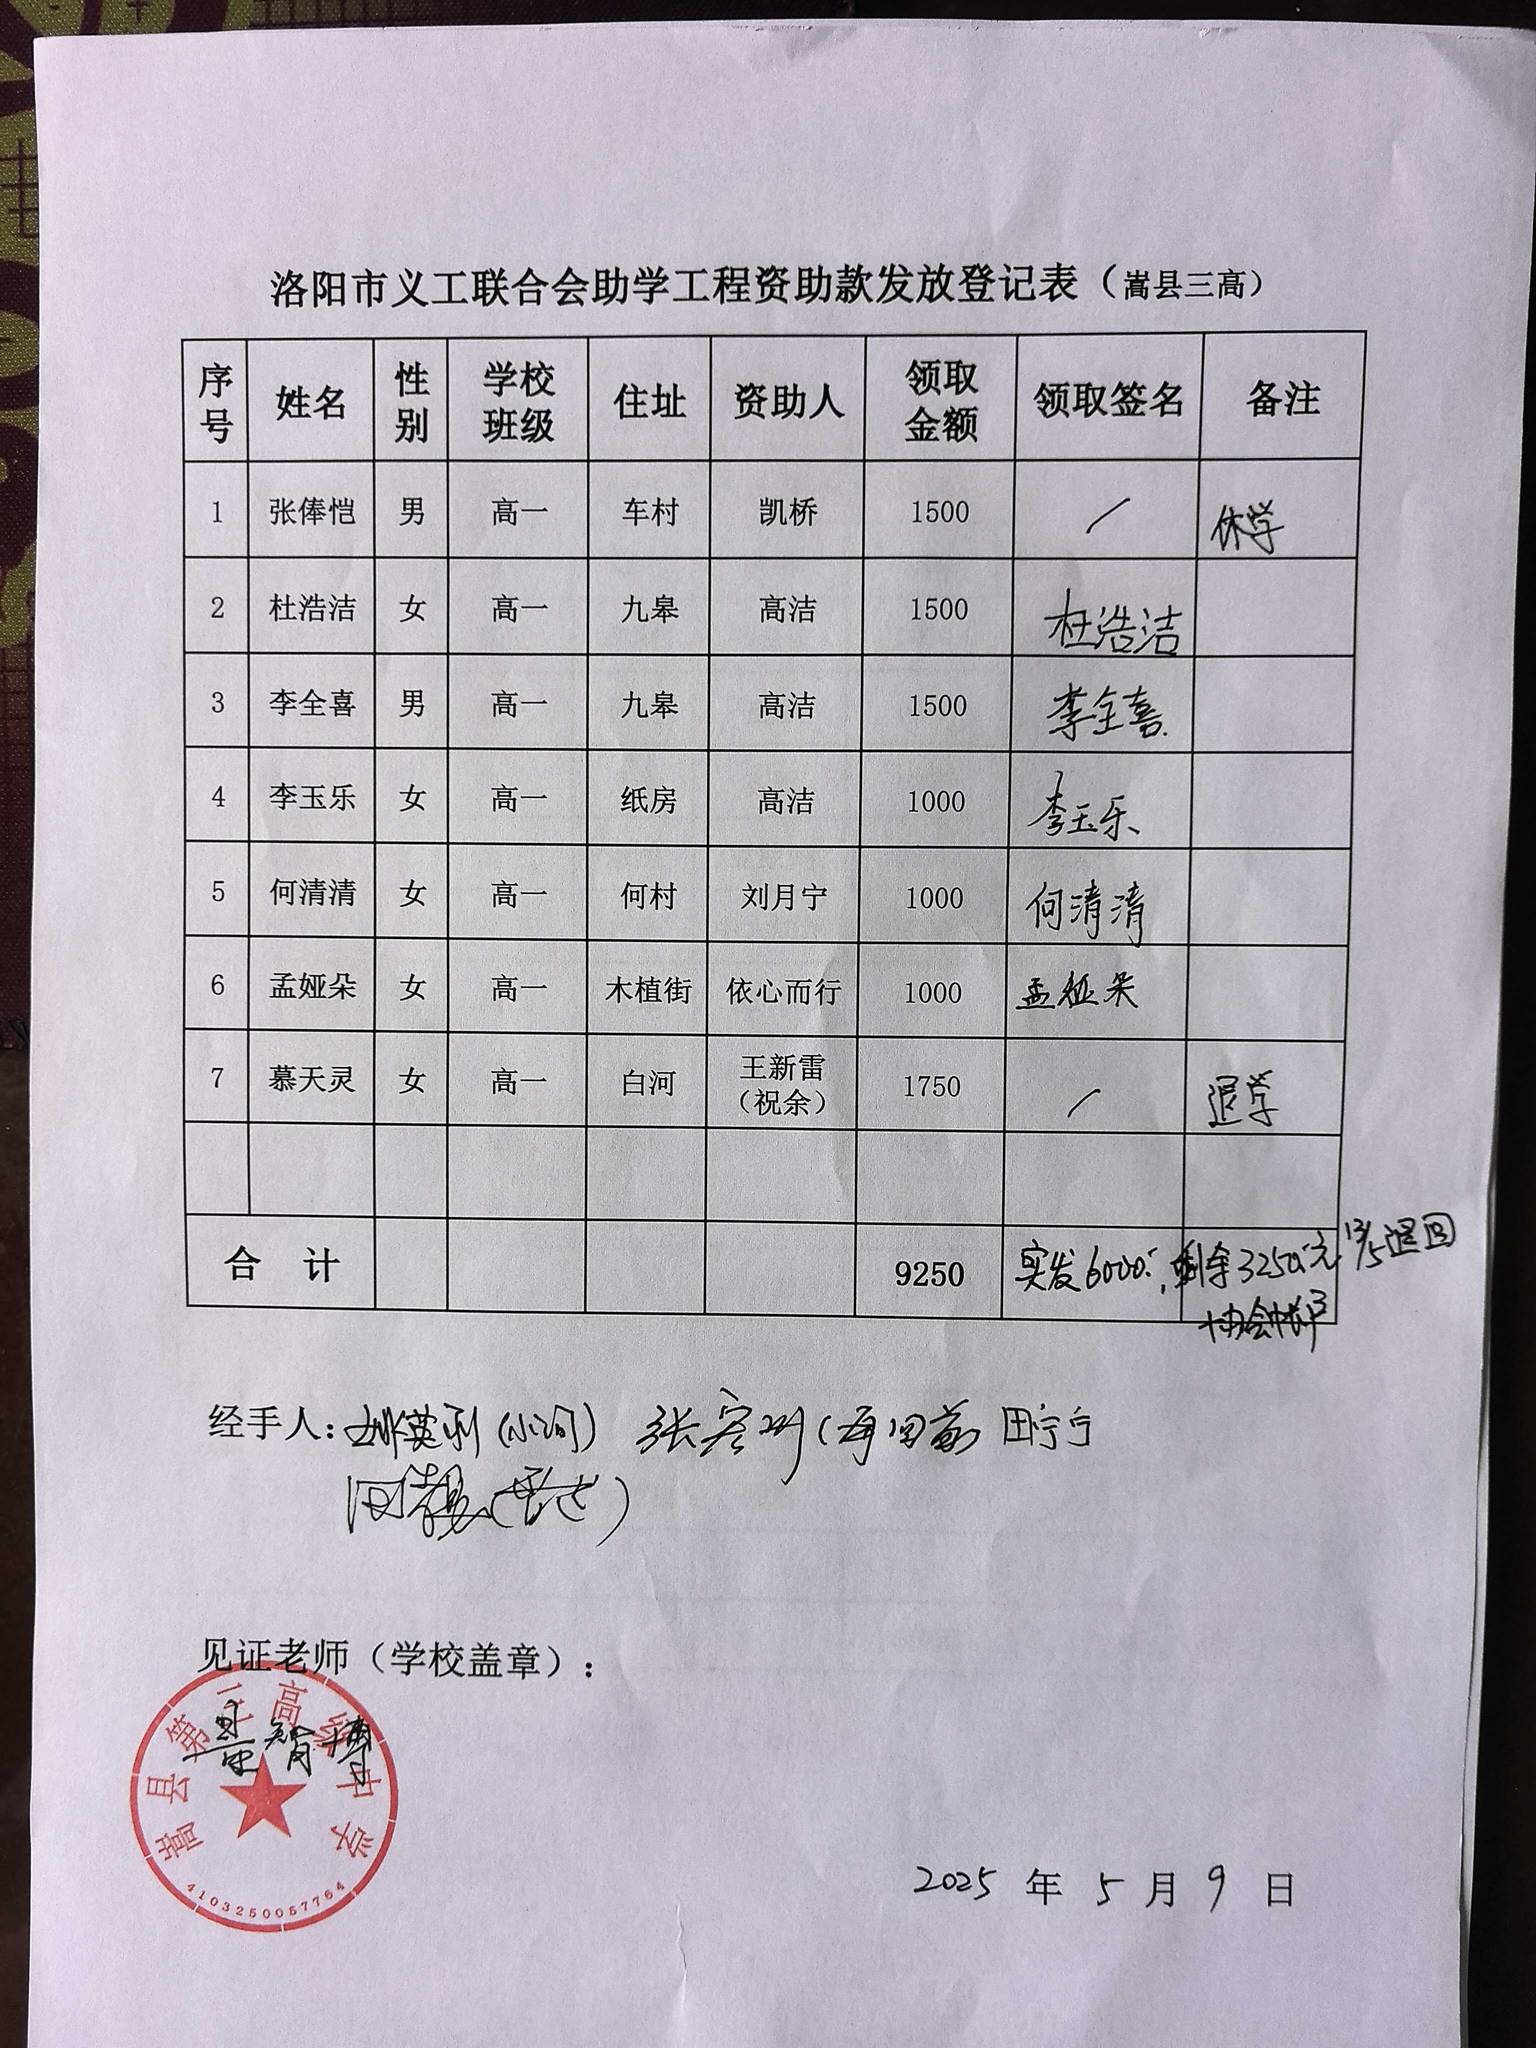 洛阳市义工联合会助学工程资助款发放登记表（嵩县三高）
序号 姓名 性别 学校班级 住址 资助人 领取金额 领取签名 备注
1 张俸恺 男 高一 车村 凯桥 1500 / 休学
2 杜浩洁 女 高一 九皋 高洁 1500 杜浩洁
3 李全喜 男 高一 九皋 高洁 1500 李全喜
4 李玉乐 女 高一 纸房 高洁 1000 李玉乐
5 何清清 女 高一 何村 刘月宁 1000 何清清
6 孟娅朵 女 高一 木植街 依心而行 1000 孟娅朵
7 慕天灵 女 高一 白河 王新雷（祝余） 1750 / 退学
合 计 9250 实发6000, 剩余3250元 13/5退回
协会
经手人： 姚英利（小河） 张 田宁宁
见证老师（学校盖章）：
智博
嵩县第三高级中学
4103250057764
2025 年 5 月 9 日